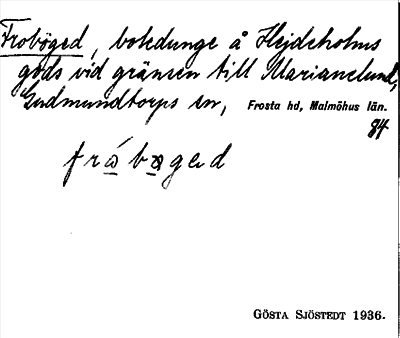 Froböged, bokedunge å Hejdeholms
gods vid gränsen till Marianelund,
Gudmundtorps sn, Frosta hd, Malmöhus län.
84
fråbøged
GÖSTA SJÖSTEDT 1936.